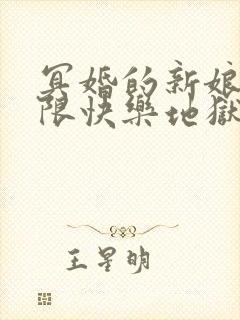 冥婚的新娘
限快樂地獄
王星明